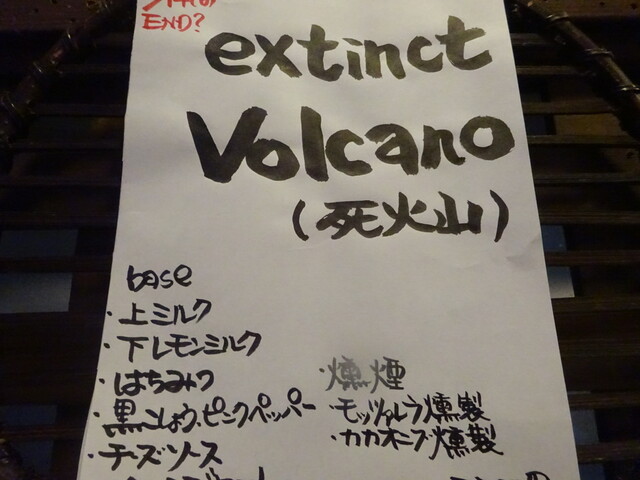 END?
extinct
Volcano
(死火山)
base
・上ミルク
・下レモンミルク
・はちみつ
・黒こしょう、ピンクペッパー
・チーズソース
・燻煙
・モッツァレラ燻製
・カカオニブ燻製